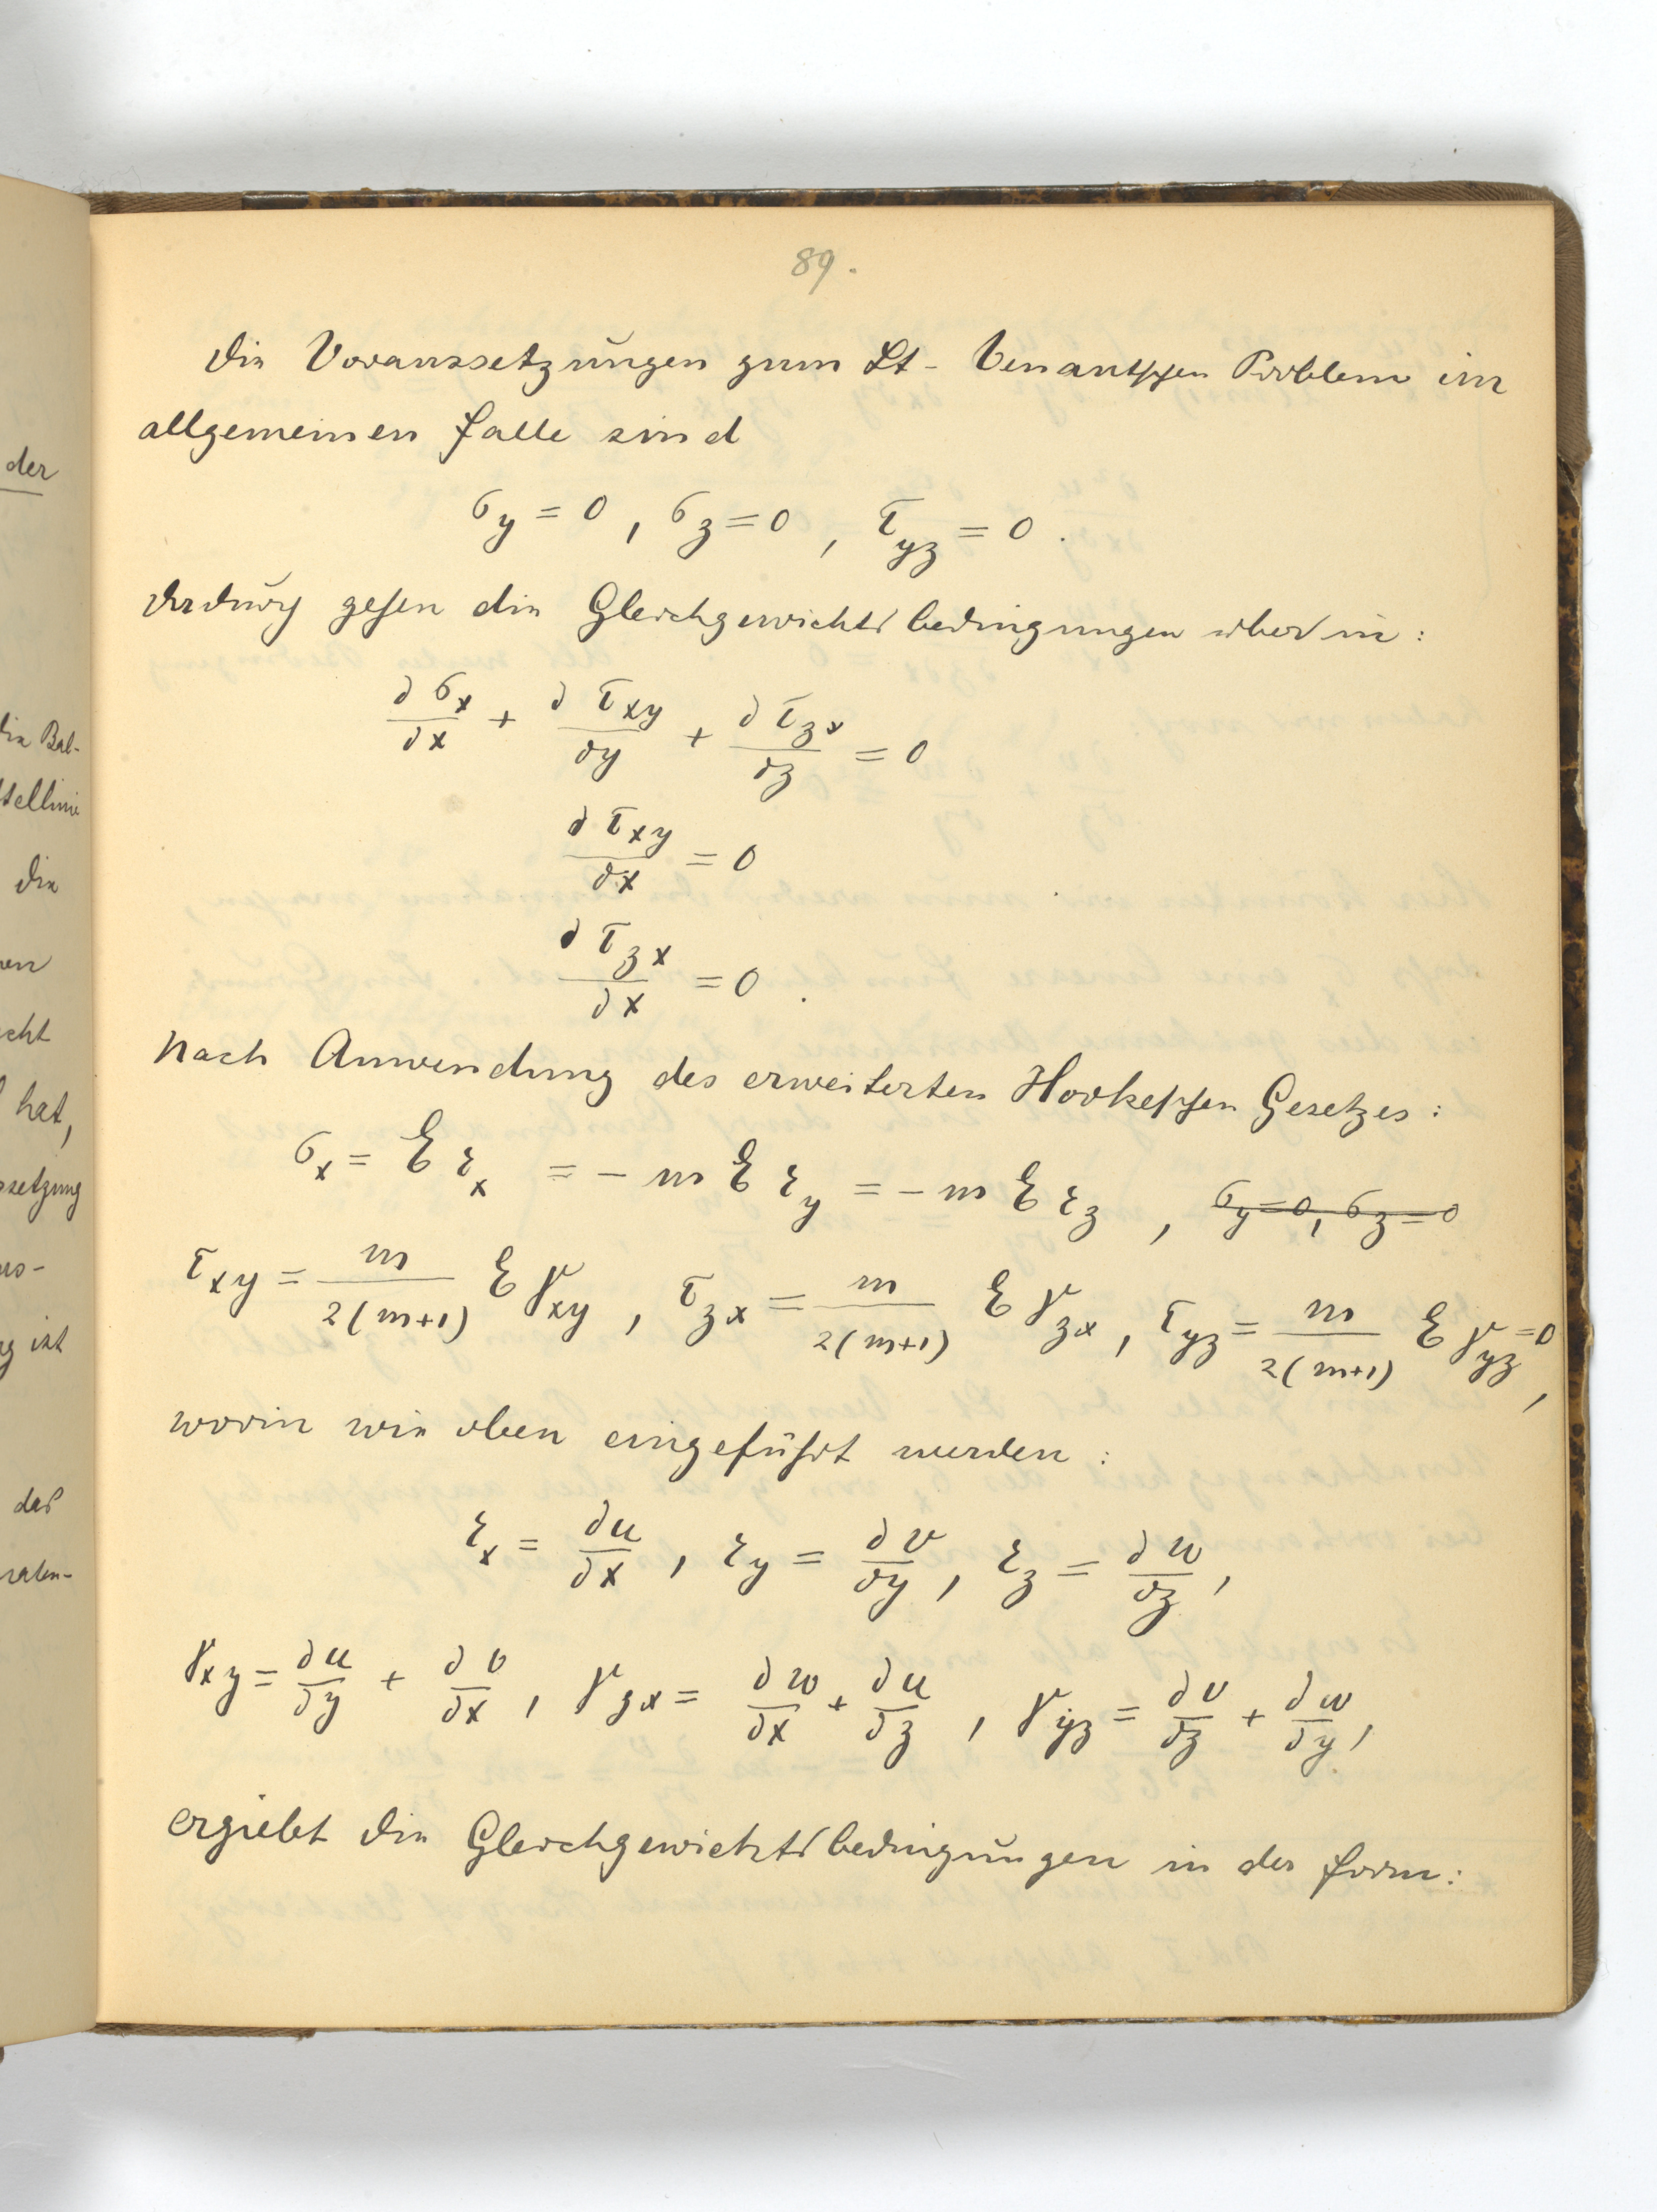 89.
Die Voraussetzungen zum St-Venantschen Problem im
allgemeinen Falle sind
σ_y = 0 , σ_z = 0 , τ_yz = 0 .
Dadurch gehen die Gleichgewichtsbedingungen über in :
∂σ_x/∂x + ∂τ_xy/∂y + ∂τ_zx/∂z = 0
∂τ_xy/∂x = 0
∂τ_zx/∂x = 0 .
Nach Anwendung des erweiterten Hookeschen Gesetzes :
σ_x = E ε_x = - m E ε_y = - m E ε_z , σ_y = 0, σ_z = 0
τ_xy = m/2(m+1) E γ_xy , τ_zx = m/2(m+1) E γ_zx , τ_yz = m/2(m+1) E γ_yz = 0 ,
worin wie oben eingeführt werden :
ε_x = ∂u/∂x , ε_y = ∂v/∂y , ε_z = ∂w/∂z ,
γ_xy = ∂u/∂y + ∂v/∂x , γ_zx = ∂w/∂x + ∂u/∂z , γ_yz = ∂v/∂z + ∂w/∂y ,
ergiebt die Gleichgewichtsbedingungen in der Form :
der
die
hat,
ist
das